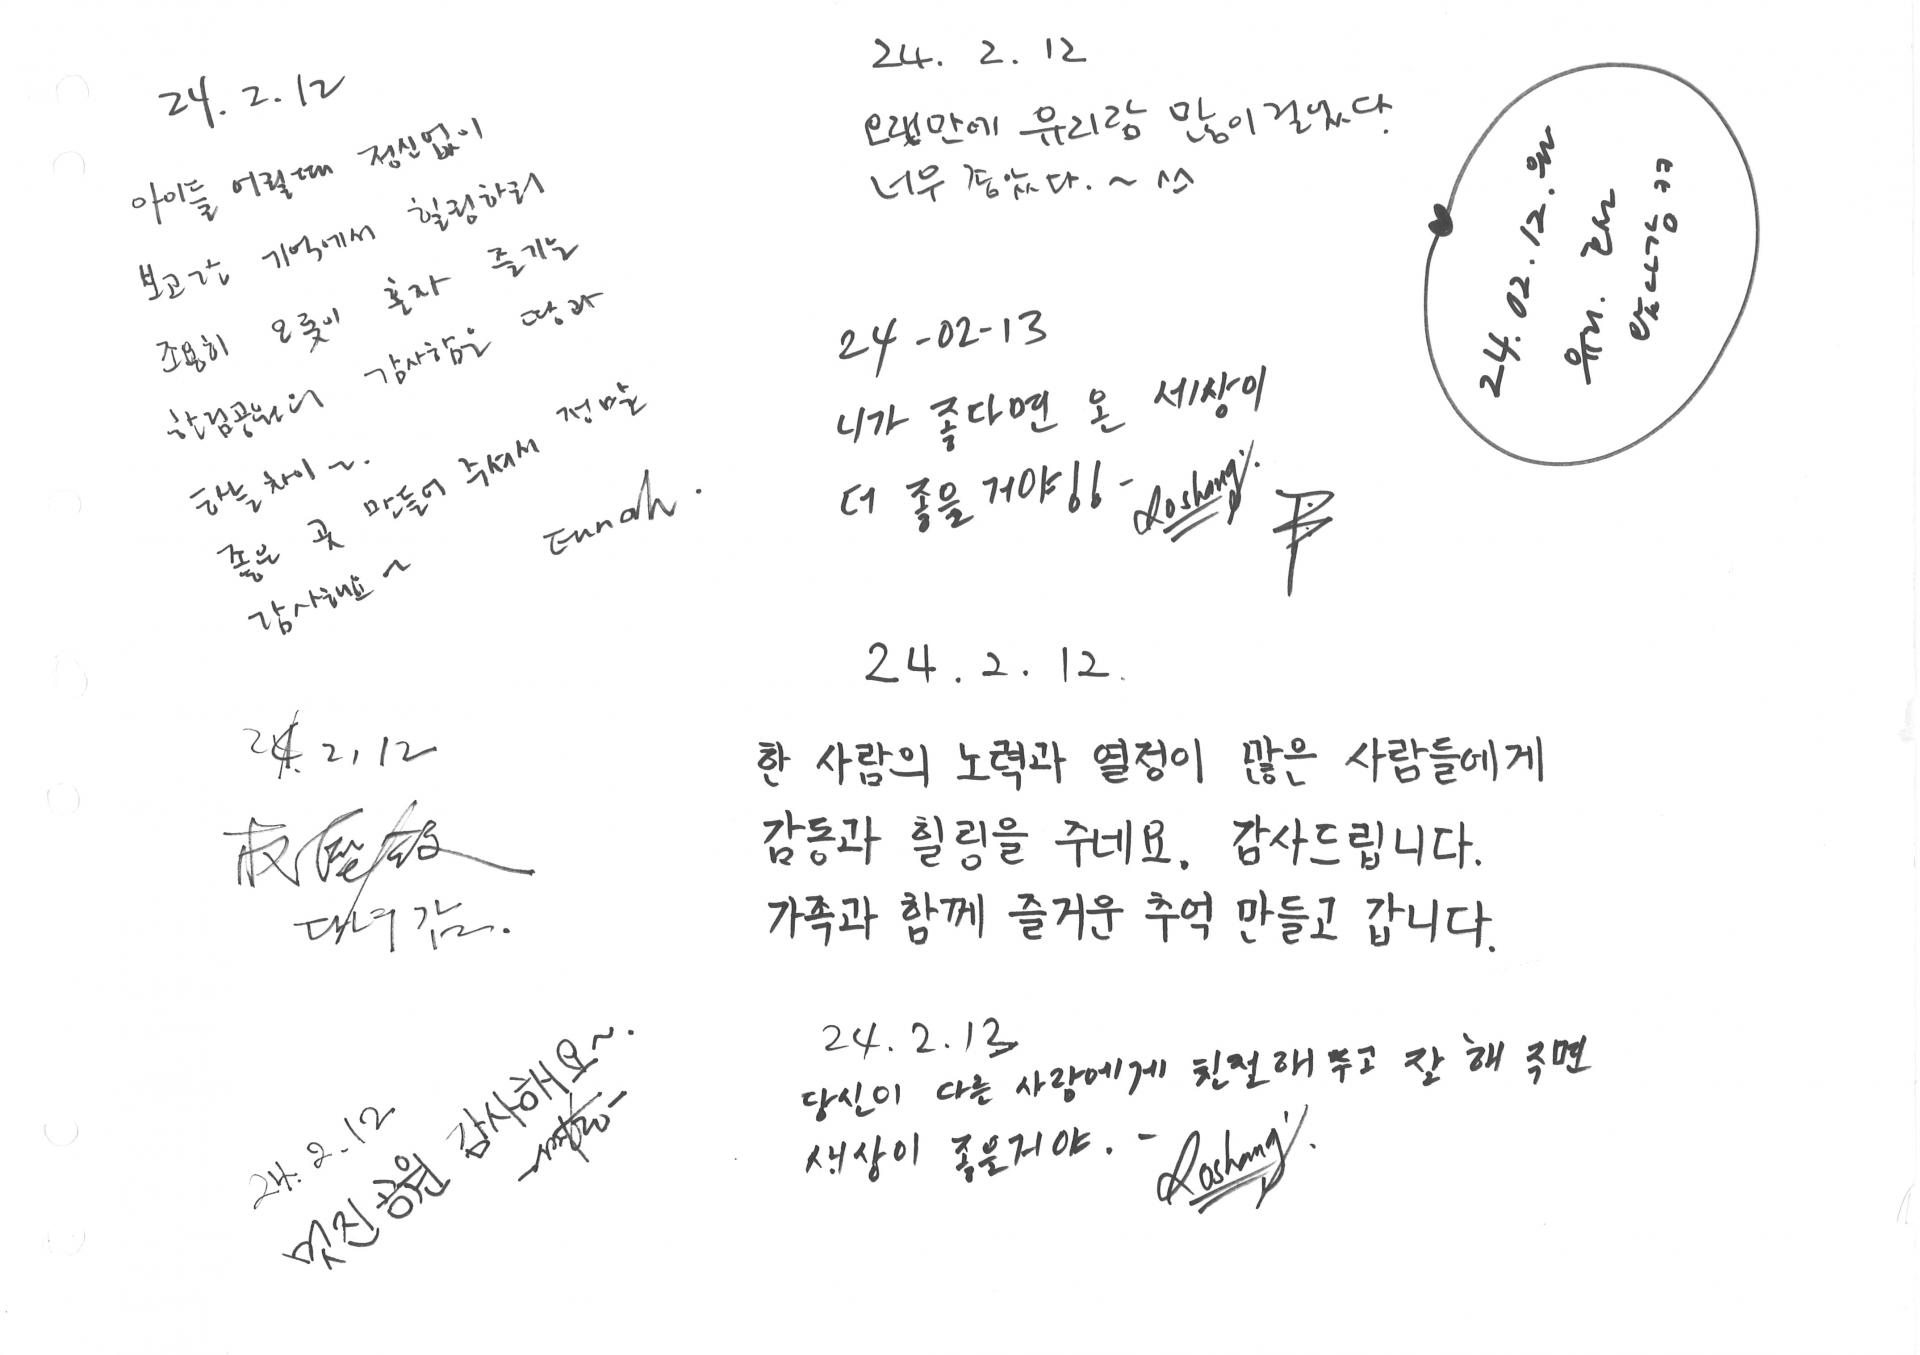 24. 2. 12
아이들 어릴때 정신없이
보고간 기억에서 힐링하러
조용히 오롯이 혼자 즐기는
한림공원의 감사함은 땅과
하늘 차이~.
좋은 곳 만들어 주셔서 정말
감사해요~
24. 2. 12
오랜만에 유리랑 많이 걸었다.
너무 좋았다.~ ^^
24. 02. 12. 월
유리.
왔다감 ㅋㅋ
24-02-13
니가 좋다면 온 세상이
더 좋을 거야!! - Roshang
24. 2. 12.
한 사람의 노력과 열정이 많은 사람들에게
감동과 힐링을 주네요. 감사드립니다.
가족과 함께 즐거운 추억 만들고 갑니다.
24. 2. 12
다녀감.
24. 2. 12
멋진공원 감사해요~.
24. 2. 13
당신이 다른 사람에게 친절해 주고 잘 해 주면
새상이 좋을거야. - Roshang